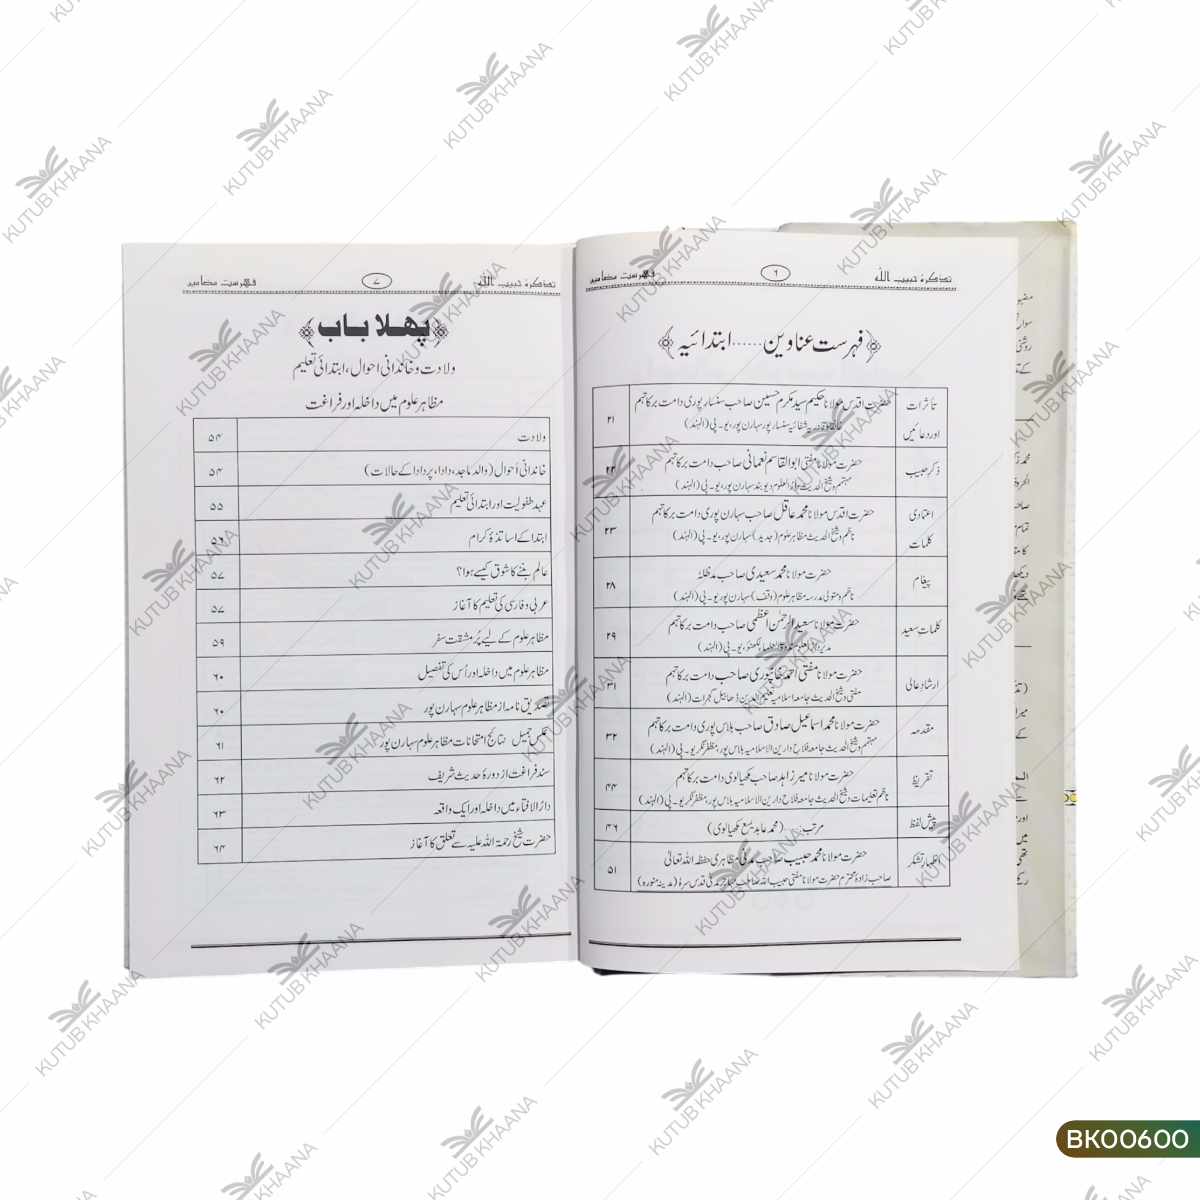 تذکرۂ حبیب اللہ ۶ فہرست مضامین
فہرست عناوین......ابتدائیہ
تأثرات اور دعائیں حضرت اقدس مولانا حکیم سید مکرم حسین صاحب سنسارپوری دامت برکاتہم ۲۱
خانقاہ قادریہ شفائیہ سنسارپور سہارن پور، یو۔پی (الہند)
ذکر حبیب حضرت مولانا مفتی ابوالقاسم نعمانی صاحب دامت برکاتہم ۲۲
مہتمم و شیخ الحدیث دارالعلوم دیوبند سہارن پور، یو۔پی (الہند)
اعتمادی کلمات حضرت اقدس مولانا محمد عاقل صاحب سہارن پوری دامت برکاتہم ۲۳
ناظم و شیخ الحدیث مظاہر علوم (جدید) سہارن پور، یو۔پی (الہند)
پیغام حضرت مولانا محمد سعیدی صاحب مدظلہ ۲۸
ناظم و متولی مدرسہ مظاہر علوم (وقف) سہارن پور یو۔پی (الہند)
کلمات سعید حضرت مولانا سعید الرحمٰن اعظمی صاحب دامت برکاتہم ۲۹
مدیر دارالعلوم ندوۃ العلماء لکھنؤ، یو۔پی (الہند)
ارشاد عالی حضرت مولانا مفتی احمد خانپوری صاحب دامت برکاتہم ۳۱
مفتی و شیخ الحدیث جامعہ اسلامیہ تعلیم الدین ڈھابیل گجرات (الہند)
مقدمہ حضرت مولانا محمد اسماعیل صادق صاحب بلاس پوری دامت برکاتہم ۳۲
مہتمم و شیخ الحدیث جامعہ فلاح دارین الاسلامیہ بلاس پور، مظفرنگر یو۔پی (الہند)
تقریظ حضرت مولانا میرزاہد صاحب مکھیالوی دامت برکاتہم ۴۴
ناظم تعلیمات و شیخ الحدیث جامعہ فلاح دارین الاسلامیہ بلاس پور، مظفرنگر یو۔پی (الہند)
پیش لفظ مرتب:..... (محمد عابد یسع مکھیالوی) ۴۶
اظہار تشکر حضرت مولانا محمد حبیب صاحب مدنی مظاہری حفظہ اللہ تعالیٰ ۵۱
صاحب زادۂ محترم حضرت مولانا مفتی حبیب اللہ صاحب مہاجر مدنی قدس سرہٗ (مدینہ منورہ)
تذکرۂ حبیب اللہ ۷ فہرست مضامین
پہلا باب
ولادت و خاندانی احوال، ابتدائی تعلیم
مظاہر علوم میں داخلہ اور فراغت
ولادت ۵۴
خاندانی اَحوال (والد ماجد، دادا، پردادا کے حالات) ۵۴
عہد طفولیت اور ابتدائی تعلیم ۵۵
ابتدا کے اساتذۂ کرام ۵۶
عالم بننے کا شوق کیسے ہوا؟ ۵۷
عربی و فارسی کی تعلیم کا آغاز ۵۷
مظاہر علوم کے لیے پُر مشقت سفر ۵۹
مظاہر علوم میں داخلہ اور اُس کی تفصیل ۶۰
تصدیق نامہ از مظاہر علوم سہارن پور ۶۰
عکس جمیل نتائج امتحانات مظاہر علوم سہارن پور ۶۱
سند فراغت از دورۂ حدیث شریف ۶۲
دارُ الافتاء میں داخلہ اور ایک واقعہ ۶۳
حضرت شیخ رحمۃ اللہ علیہ سے تعلق کا آغاز ۶۴
KUTUB KHAANA
BK00600